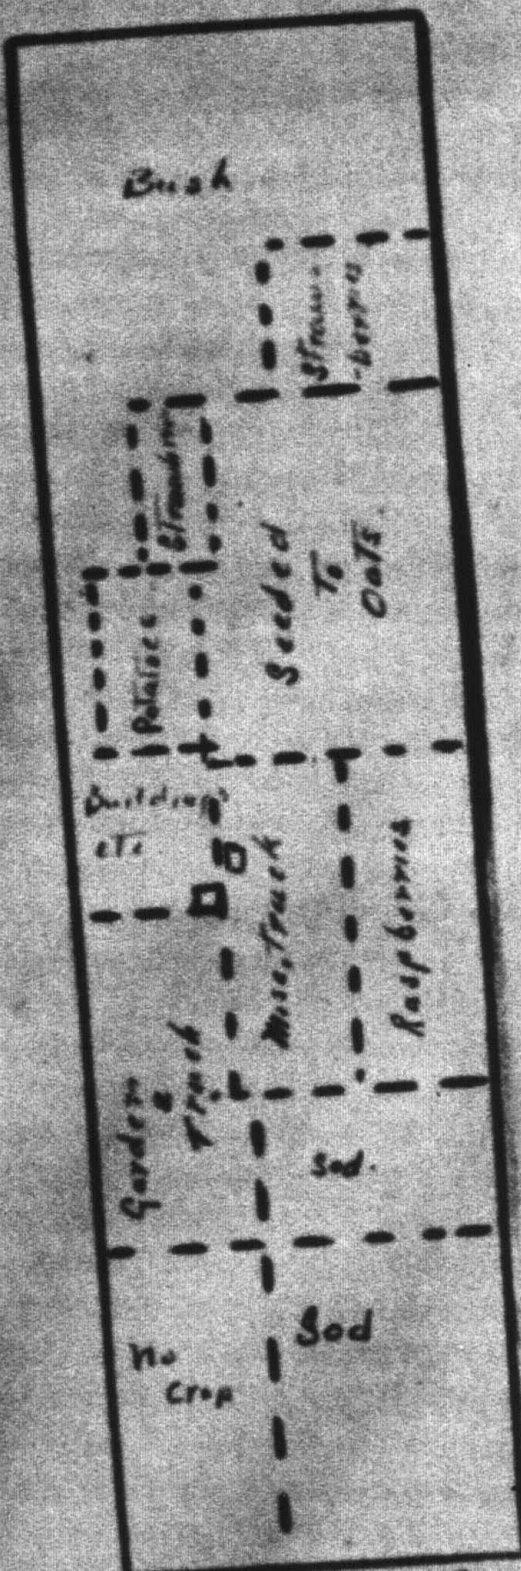 Bush
Straw-
-berries
Strawberry
Potatoes
Seeded
To
Oats.
Buildings
etc.
Misc. Truck
Raspberries
Garden
&
Truck
Sod.
No
Crop
Sod